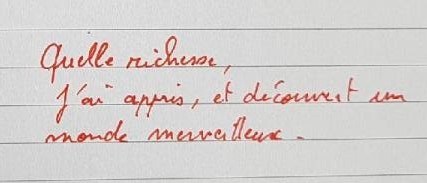 Quelle richesse,
J'ai appris, et découvert un
monde merveilleux.